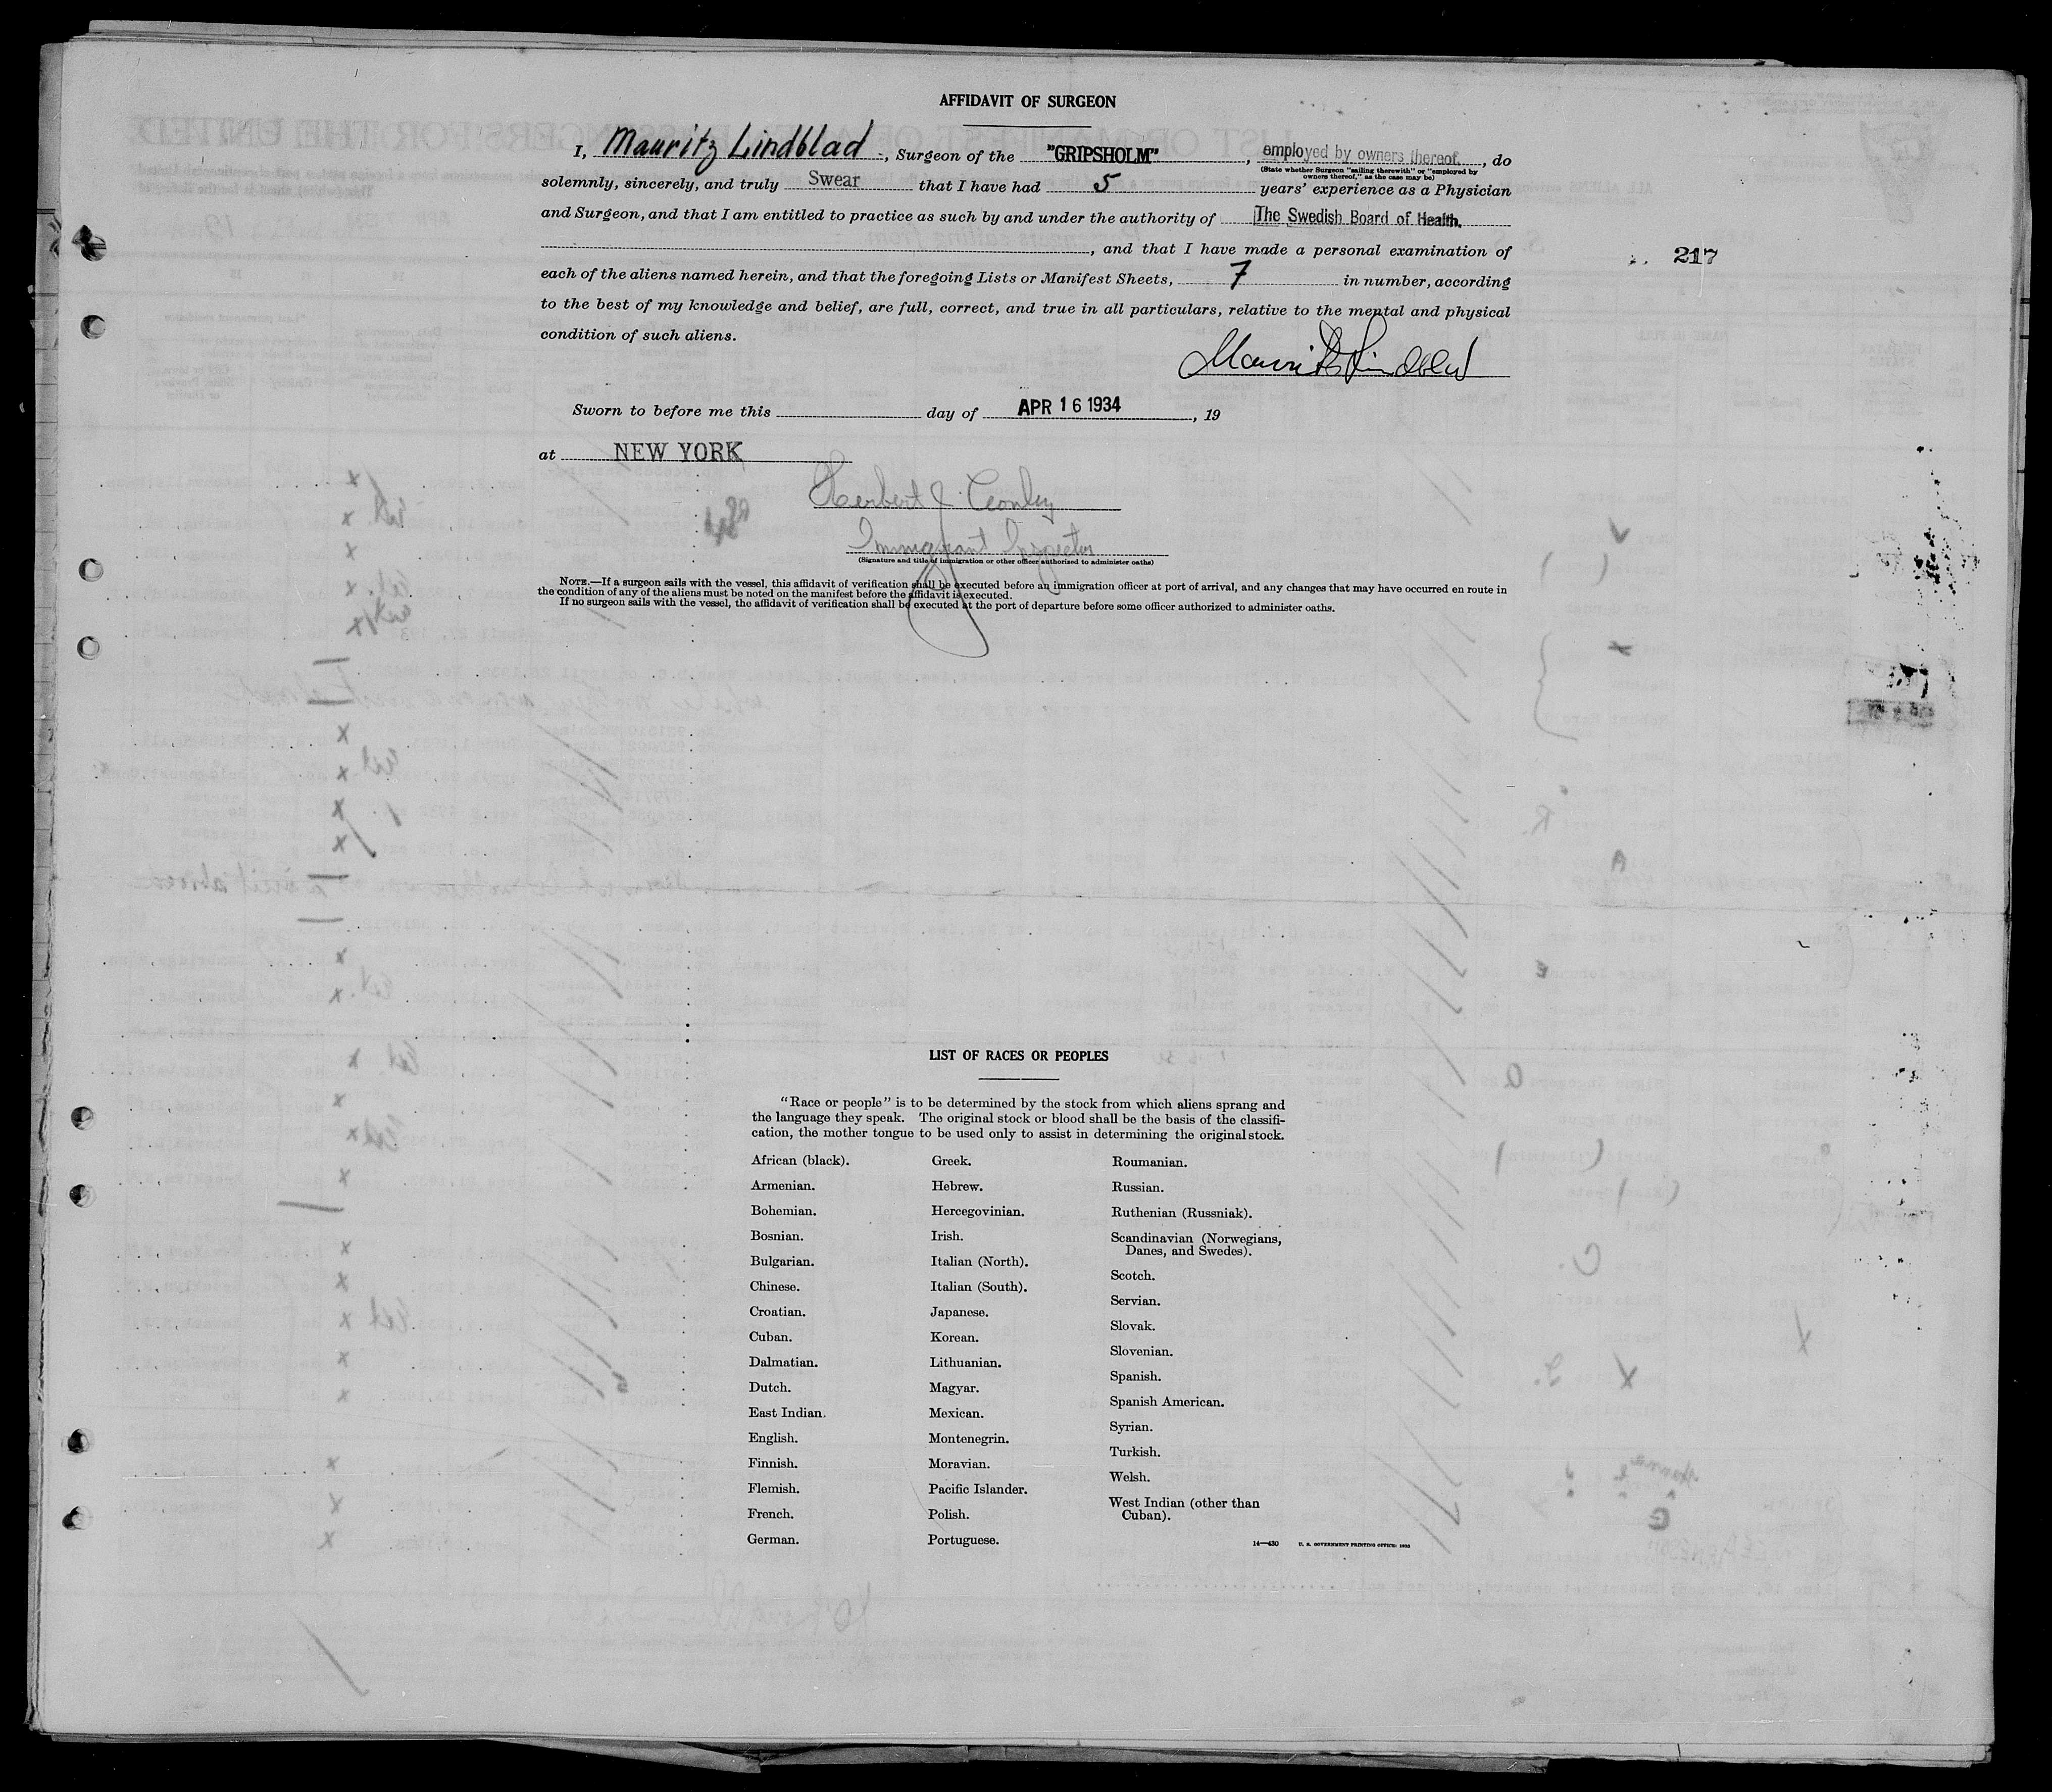 AFFIDAVIT OF SURGEON
I, Mauritz Lindblad, Surgeon of the "GRIPSHOLM", employed by owners thereof, do
(State whether Surgeon "sailing therewith" or "employed by
owners thereof," as the case may be)
solemnly, sincerely, and truly Swear that I have had 5 years' experience as a Physician
and Surgeon, and that I am entitled to practice as such by and under the authority of The Swedish Board of Health.
, and that I have made a personal examination of
217
each of the aliens named herein, and that the foregoing Lists or Manifest Sheets, 7 in number, according
to the best of my knowledge and belief, are full, correct, and true in all particulars, relative to the mental and physical
condition of such aliens.
Mauritz Lindblad
Sworn to before me this day of APR 16 1934, 19
at NEW YORK
Herbert J. Conley
Immigrant Inspector
(Signature and title of immigration or other officer authorized to administer oaths)
NOTE.—If a surgeon sails with the vessel, this affidavit of verification shall be executed before an immigration officer at port of arrival, and any changes that may have occurred en route in
the condition of any of the aliens must be noted on the manifest before the affidavit is executed.
If no surgeon sails with the vessel, the affidavit of verification shall be executed at the port of departure before some officer authorized to administer oaths.
LIST OF RACES OR PEOPLES
"Race or people" is to be determined by the stock from which aliens sprang and
the language they speak. The original stock or blood shall be the basis of the classifi-
cation, the mother tongue to be used only to assist in determining the original stock.
African (black).
Armenian.
Bohemian.
Bosnian.
Bulgarian.
Chinese.
Croatian.
Cuban.
Dalmatian.
Dutch.
East Indian.
English.
Finnish.
Flemish.
French.
German.
Greek.
Hebrew.
Hercegovinian.
Irish.
Italian (North).
Italian (South).
Japanese.
Korean.
Lithuanian.
Magyar.
Mexican.
Montenegrin.
Moravian.
Pacific Islander.
Polish.
Portuguese.
Roumanian.
Russian.
Ruthenian (Russniak).
Scandinavian (Norwegians,
Danes, and Swedes).
Scotch.
Servian.
Slovak.
Slovenian.
Spanish.
Spanish American.
Syrian.
Turkish.
Welsh.
West Indian (other than
Cuban).
14—430 U. S. GOVERNMENT PRINTING OFFICE: